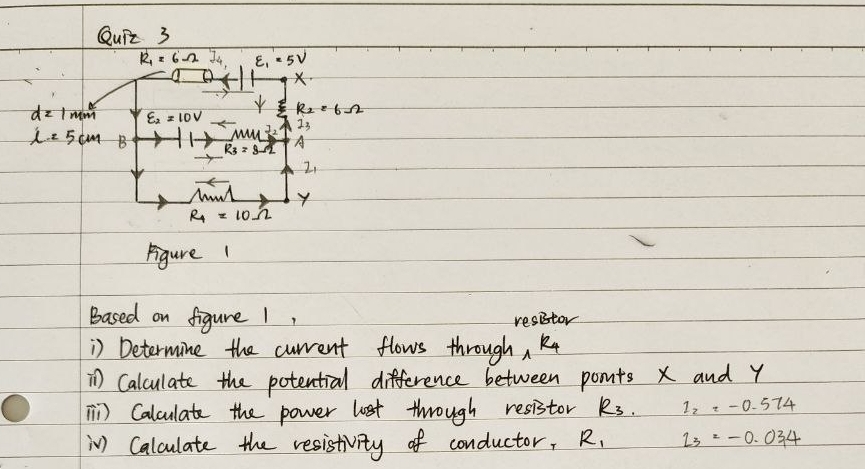 Quiz 3
R₁ = 6Ω I₄ ε₁ = 5V
X
d = 1 mm
ε₂ = 10V
R₂ = 6Ω
l = 5 cm
B
I₂
I₃
A
R₃ = 8Ω
I₁
Y
R₄ = 10Ω
Figure 1
Based on figure 1,
resistor
i) Determine the current flows through ∧ R₄
ii) Calculate the potential difference between points X and Y
iii) Calculate the power lost through resistor R₃. I₂ = -0.574
iv) Calculate the resistivity of conductor, R₁ I₃ = -0.034